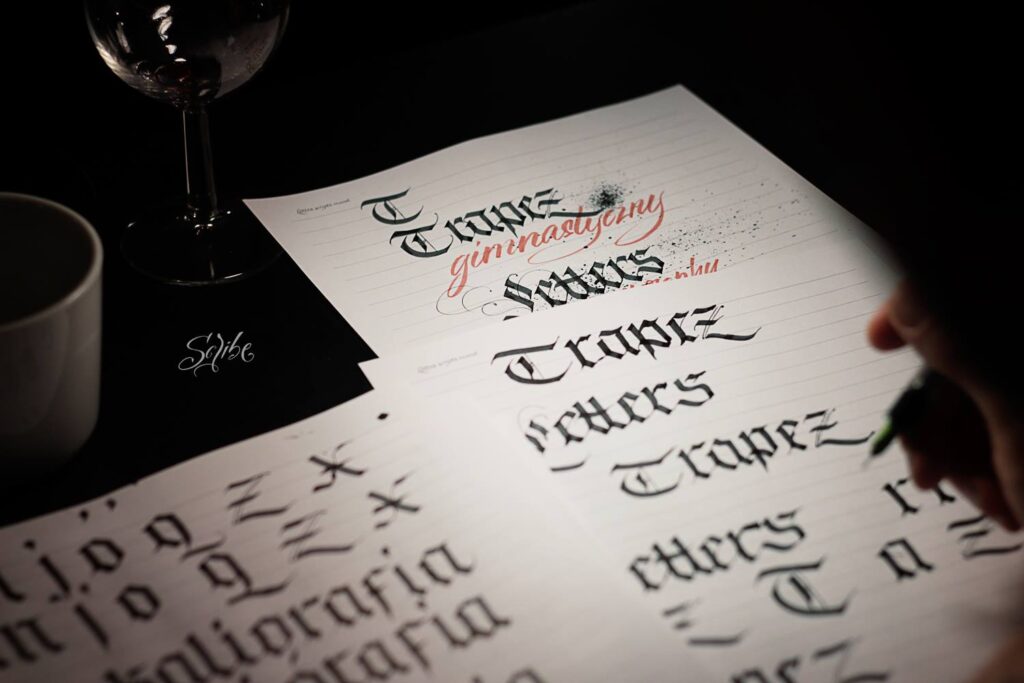 T
Trapez
gimnastyczny
Letters
Scribe
Trapez
Letters
Trapez
etters r
T a z
n j o g z x
n j o g z x
kaligrafia